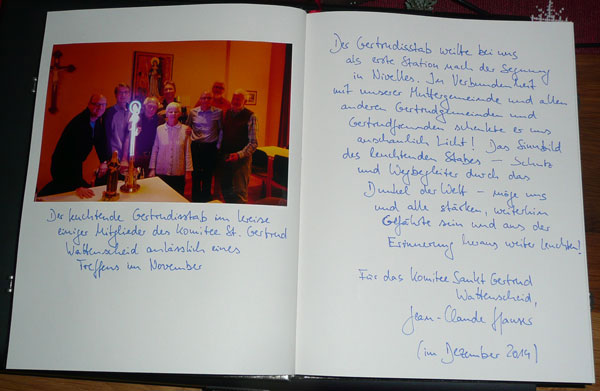 Der leuchtende Gertrudisstab im Kreise
einiger Mitglieder des Komitee St. Gertrud
Wattenscheid anlässlich eines
Treffens im November
Der Gertrudisstab weilte bei uns
als erste Station nach der Segnung
in Nivelles. In Verbundenheit
mit unserer Muttergemeinde und allen
anderen Gertrudgemeinden und
Gertrudfreunden schenkte er uns
anschaulich Licht! Das Sinnbild
des leuchtenden Stabes – Schutz
und Wegbegleiter durch das
Dunkel der Welt – möge uns
und alle stärken, weiterhin
Gefährte sein und aus der
Erinnerung heraus weiter leuchten!
Für das Komitee Sankt Gertrud
Wattenscheid,
Jean-Claude
(im Dezember 2014)